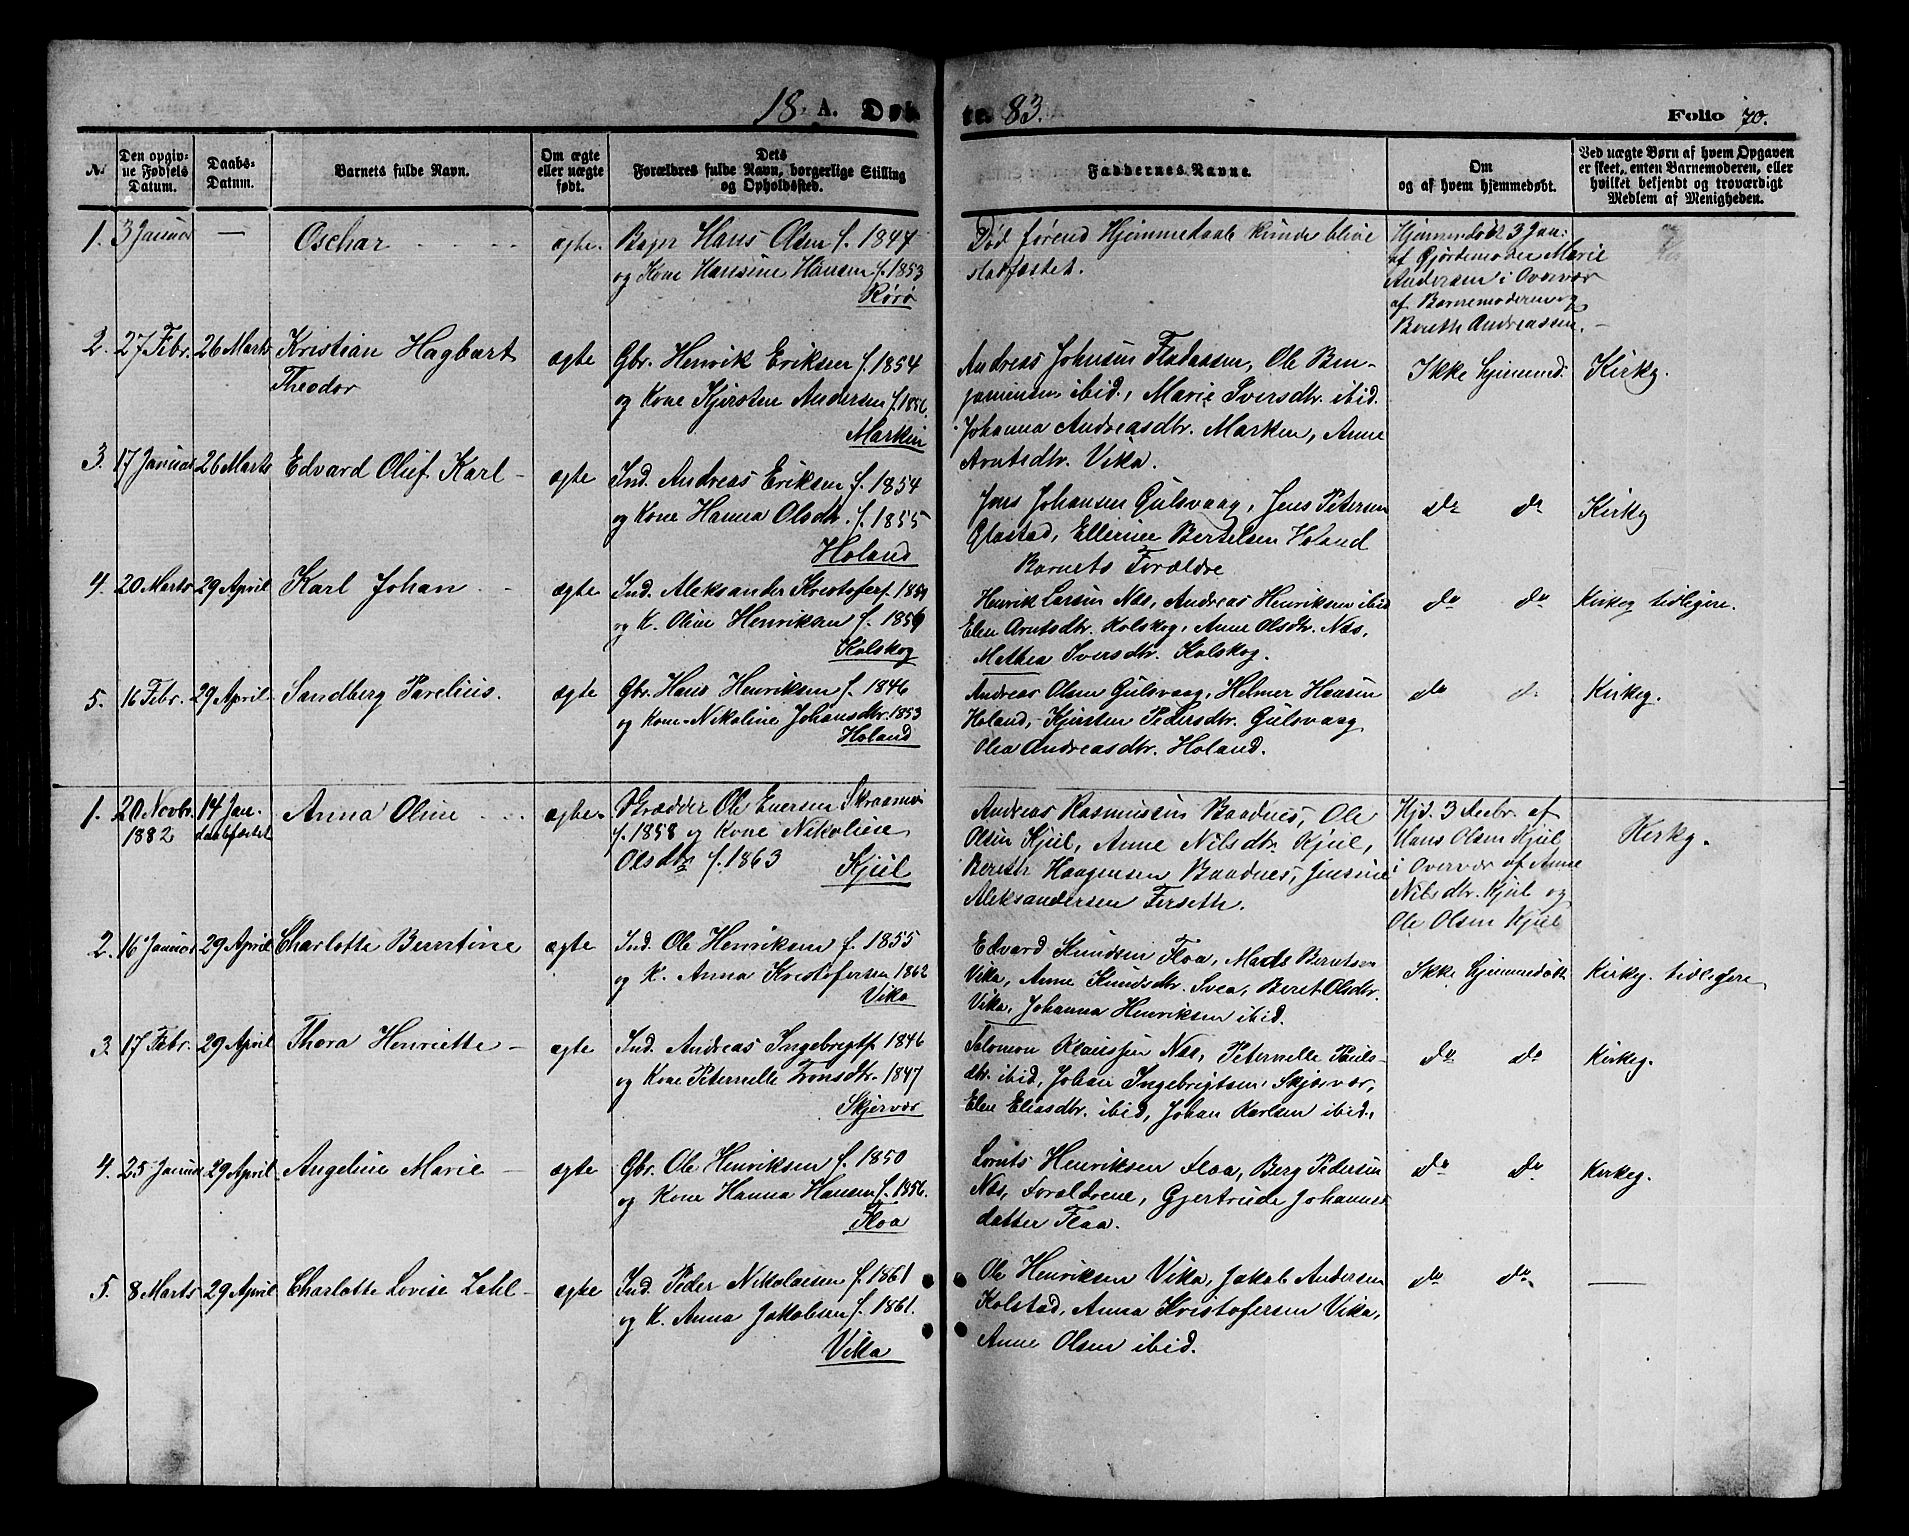 18 A. Døbte. 83. Folio 70.
№ | Den opgivne Fødsels Datum. | Daabs-Datum. | Barnets fulde Navn. | Om ægte eller uægte født. | Dets Forældres fulde Navn, borgerlige Stilling og Opholdssted. | Faddernes Navne. | Om og af hvem hjemmedøbt. | Ved uægte Børn af hvem Opgaven er skeet, enten Barnemoderen, eller hvilket bekjendt og troværdigt Medlem af Menigheden.
1. 3 Januar — Oschar ægte. Hans Olsen f. 1847 Død førend Hjemmedaab kunde blive Hjemmedøbt 3 Jan:
og Kone Hansine Hansen f. 1853 stadfæstet. af Gjordemoder Marie
Rørø Andersen i Overvær
af Barnemoderen og
Bereth Andreassen.
2. 27 Febr. 26 Marts Kristian Hagbart ægte Gbr. Henrik Eriksen f. 1854 Andreas Johnsen Fladaasen, Ole Ben- Ikke hjemmed. Kirkg.
Theodor og Kone Kjersten Andersen f. 1856. jaminsen ibid., Marie Iversdtr. ibid.
Marken Johanna Andreasdtr. Marken, Anne
Arntsdtr. Vika.
3. 17 Januar 26 Marts Edvard Oluf Karl — ægte Ind. Andreas Eriksen f. 1854 Jens Johansen Gulsvaag, Jens Petersen do do Kirkg
og Kone Hanna Olsdtr. f. 1855 Glastad, Ellerine Bertelsen Holand
Holand Barnets Forældre
4. 20 Marts 29 April Karl Johan ægte Ind. Aleksander Kristofersf. 1854 Henrik Larsen Næs, Andreas Henriksen ibid do do Kirkeg tidligere.
og K. Oline Henriksen f. 1856 Elen Arntsdtr. Kolskog, Anne Olsdtr. Næs,
Kolskog Methea Iversdtr. Kolskog.
5. 16 Febr. 29 April Sandberg Parelius. ægte Gbr. Hans Henriksen f. 1846 Andreas Olsen Gulsvaag, Helmer Hansen do do Kirkeg.
og Kone Nikoline Johansdtr. 1853 Holand, Kjersten Pedersdtr. Gulsvaag
Holand Olea Andreasdtr. Holand.
1. 20 Novbr. 14 Jan. Anna Oline ægte Ole Enersen Andreas Rasmussen Baadnes, Ole Hjd. 3 Decbr. af Kirkg.
1882 daabfæstet f. 1858 og Kone Nikoline Olsen Kjul, Anne Nilsdtr. Kjul, Hans Olsen Kjul
Olsdtr f. 1863 Kjul Bereth Haagensen Baadnes, Jensine i Overvær af Anne
Aleksandersen Ferseth. Nilsdtr. Kjul og
Ole Olsen Kjul
2. 16 Januar 29 April Charlotte Berntine ægte Ind. Ole Henriksen f. 1855 Edvard Knudsen Floa, Mads Berntsen Ikke hjemmedøbt Kirkg. tidligere
og K. Anna Kristofersen 1862 Vika, Anne Knudsdtr. Svea, Beret Olsdtr.
Vika Vika, Johanna Henriksen ibid.
3. 17 Febr. 29 April Thora Henriette — ægte Ind. Andreas Ingebrigtsf. 1846 Salomon Klaussen Næs, Peternelle Pauls- do do Kirkeg.
og Kone Peternelle Tronsdtr. 1847 dtr. ibid, Johan Ingebrigtsen Skjervær,
Skjervær Elen Eliasdtr. ibid, Johan Karlsen ibid.
4. 25 Januar 29 April Angeline Marie — ægte Gbr. Ole Henriksen f. 1850 Lornts Henriksen Floa, Berg Pedersen do do Kirkeg.
og Kone Hanna Hansen f. 1856. Næs, Forældrene, Gjertrude Johannes
Floa datter Floa.
5. 8 Marts 29 April Charlotte Lovise Zahl — ægte Ind. Peder Nikolaisen f. 1861 Ole Henriksen Vika, Jakob Andersen do do —
og K. Anna Jakobsen f. 1861. Kolstad, Anna Kristofersen Vika,
Vika Anne Olsen ibid.